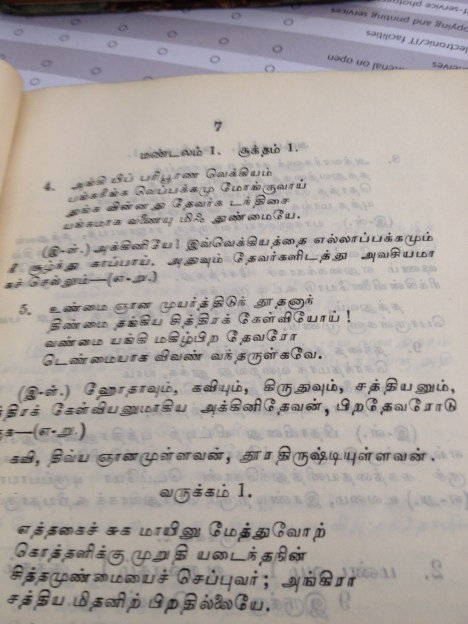 lf-service photo
copying and printing services
electronic/IT facilities
material on open
7
மண்டலம் 1. சூக்தம் 1.
4. அங்கி யிப் பரிபூரண வெக்கியம்
வெப்பக்கமு மோங்குவாய்
தேவர்க டந்திசை
தண்மையே.
(இ-ள்.) அக்கினியே! இவ்வெக்கியத்தை எல்லாப்பக்கமும்
நீ சூழ்ந்து காப்பாய். அதுவும் தேவர்களிடத்து அவசியமா
கச் செல்லும்—(எ-று.)
5. உண்மை ஞான முயர்த்திடுந் தூதனாந்
திண்மை தங்கிய சித்திரக் கேள்வியோய்!
வண்மை யங்கி மகிழ்பிற தேவரோ
டெண்மையாக விவண் வந்தருள்கவே.
(இ-ள்.) ஹோதாவும், கவியும், கிருதுவும், சத்தியனும்,
த்திரக் கேள்வியனுமாகிய அக்கினிதேவன், பிறதேவரோடு
ருக—(எ-று.)
கவி, திவ்ய ஞானமுள்ளவன், தூரதிருஷ்டியுள்ளவன்.
வருக்கம் 1.
எத்தகைச் சுக மாயினு மேத்துவோற்
கொத்தளிக்கு முறுதி யடைந்தநின்
சித்தமுண்மையைச் செப்புவர்; அங்கிரா
சத்திய மிதனிற் பிறதில்லையே.